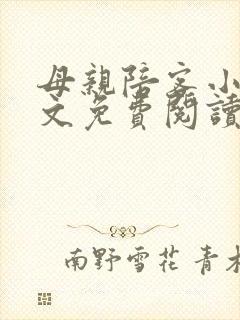 母親陪客小
文免費閱讀
南野雪花 青木